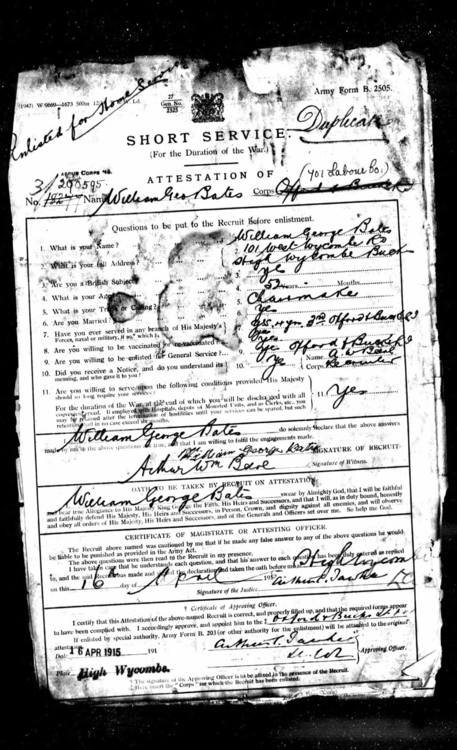 Enlisted for Home Service
27
Gen. No.
2525
Army Form B. 2505.
Duplicate
SHORT SERVICE.
(For the Duration of the War.)
ATTESTATION OF
(401 Labour Co.)
No. Name William Geo Bates Corps
Questions to be put to the Recruit before enlistment.
1. What is your Name? William George Bates
2. What is your full Address? 101 West Wycombe Rd
High Wycombe Bucks
3. Are you a British Subject? 3. Yes
4. What is your Age? 4. 52 Months
5. What is your Trade or Calling? 5. Chairmaker
6. Are you Married? 6. Yes
7. Have you ever served in any branch of His Majesty's
Forces, naval or military, if so, which? 7.
8. Are you willing to be vaccinated or re-vaccinated? 8. Yes
9. Are you willing to be enlisted for General Service? 9. Yes
10. Did you receive a Notice, and do you understand its
meaning, and who gave it to you? 10. Yes Name
Corps
11. Are you willing to serve upon the following conditions provided His Majesty
should so long require your services?
For the duration of the War, at the end of which you will be discharged with all
11. Yes
William George Bates do solemnly declare that the above answers
made by me to the above questions are true, and that I am willing to fulfil the engagements made.
William George Bates SIGNATURE OF RECRUIT.
Arthur Wm Signature of Witness.
OATH TO BE TAKEN BY RECRUIT ON ATTESTATION.
William George Bates swear by Almighty God, that I will be faithful
and bear true Allegiance to His Majesty King George the Fifth, His Heirs and Successors, and that I will, as in duty bound, honestly
and faithfully defend His Majesty, His Heirs and Successors, in Person, Crown, and dignity against all enemies, and will observe
and obey all orders of His Majesty, His Heirs and Successors, and of the Generals and Officers set over me. So help me God.
CERTIFICATE OF MAGISTRATE OR ATTESTING OFFICER.
The Recruit above named was cautioned by me that if he made any false answer to any of the above questions he would
be liable to be punished as provided in the Army Act.
The above questions were then read to the Recruit in my presence.
I have taken care that he understands each question, and that his answer to each question has been duly entered as replied
to, and the said Recruit has made and signed the declaration and taken the oath before me at High Wycombe
on this 16th day of April 191
Signature of the Justice
† Certificate of Approving Officer.
I certify that this Attestation of the above-named Recruit is correct, and properly filled up, and that the required forms appear
to have been complied with. I accordingly approve, and appoint him to the ‡
If enlisted by special authority, Army Form B. 203 (or other authority for the enlistment) will be attached to the original
attestation.
Date 16 APR 1915 191
Approving Officer.
Place High Wycombe.
† The signature of the Approving Officer is to be affixed in the presence of the Recruit.
‡ Here insert the "Corps" for which the Recruit has been enlisted.